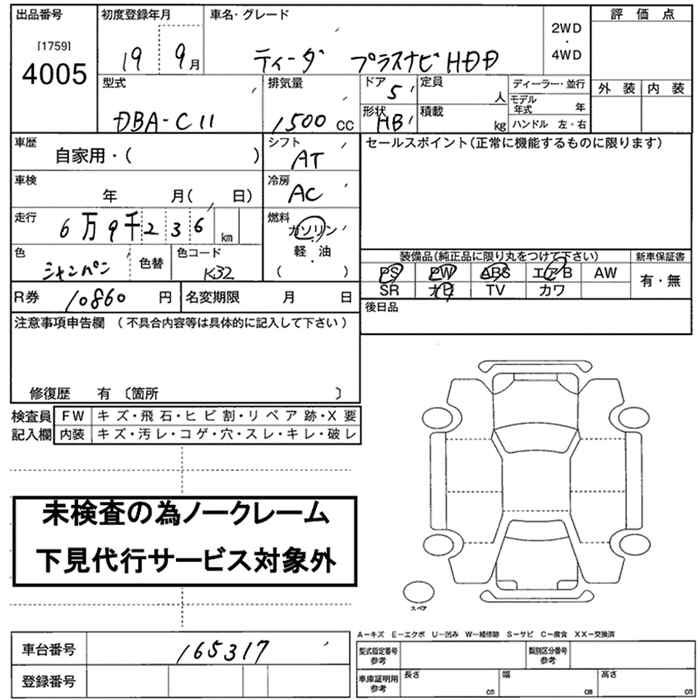 出品番号 初度登録年月 車名・グレード 2WD・4WD 評価点
[1759] 4005 19 9月 ティーダ プラスナビHDD
外装 内装
型式 排気量 ドア 5 定員 人 ディーラー・並行
DBA-C11 1500 CC 形状 HB 積載 kg モデル年式 年
ハンドル 左・右
車歴 自家用・( ) シフト AT セールスポイント(正常に機能するものに限ります)
車検 年 月( 日) 冷房 AC
走行 6万9千236 km 燃料 ガソリン・軽油 ( )
色 シャンパン 色替 色コード K32
装備品(純正品に限り丸をつけて下さい) 新車保証書
PS PW ABS エアB AW 有・無
SR ナビ TV カワ
R券 10860 円 名変期限 月 日 後日品
注意事項申告欄 (不具合内容等は具体的に記入して下さい)
修復歴 有 〔箇所 〕
検査員 FW キズ・飛石・ヒビ割・リペア跡・X要
記入欄 内装 キズ・汚レ・コゲ・穴・スレ・キレ・破レ
未検査の為ノークレーム
下見代行サービス対象外
スペア
A-キズ E-エクボ U-凹み W-補修跡 S-サビ C-腐食 XX-交換済
車台番号 165317 型式指定番号 参考 類別区分番号 参考
登録番号 車庫証明用 参考 長さ cm 幅 cm 高さ cm